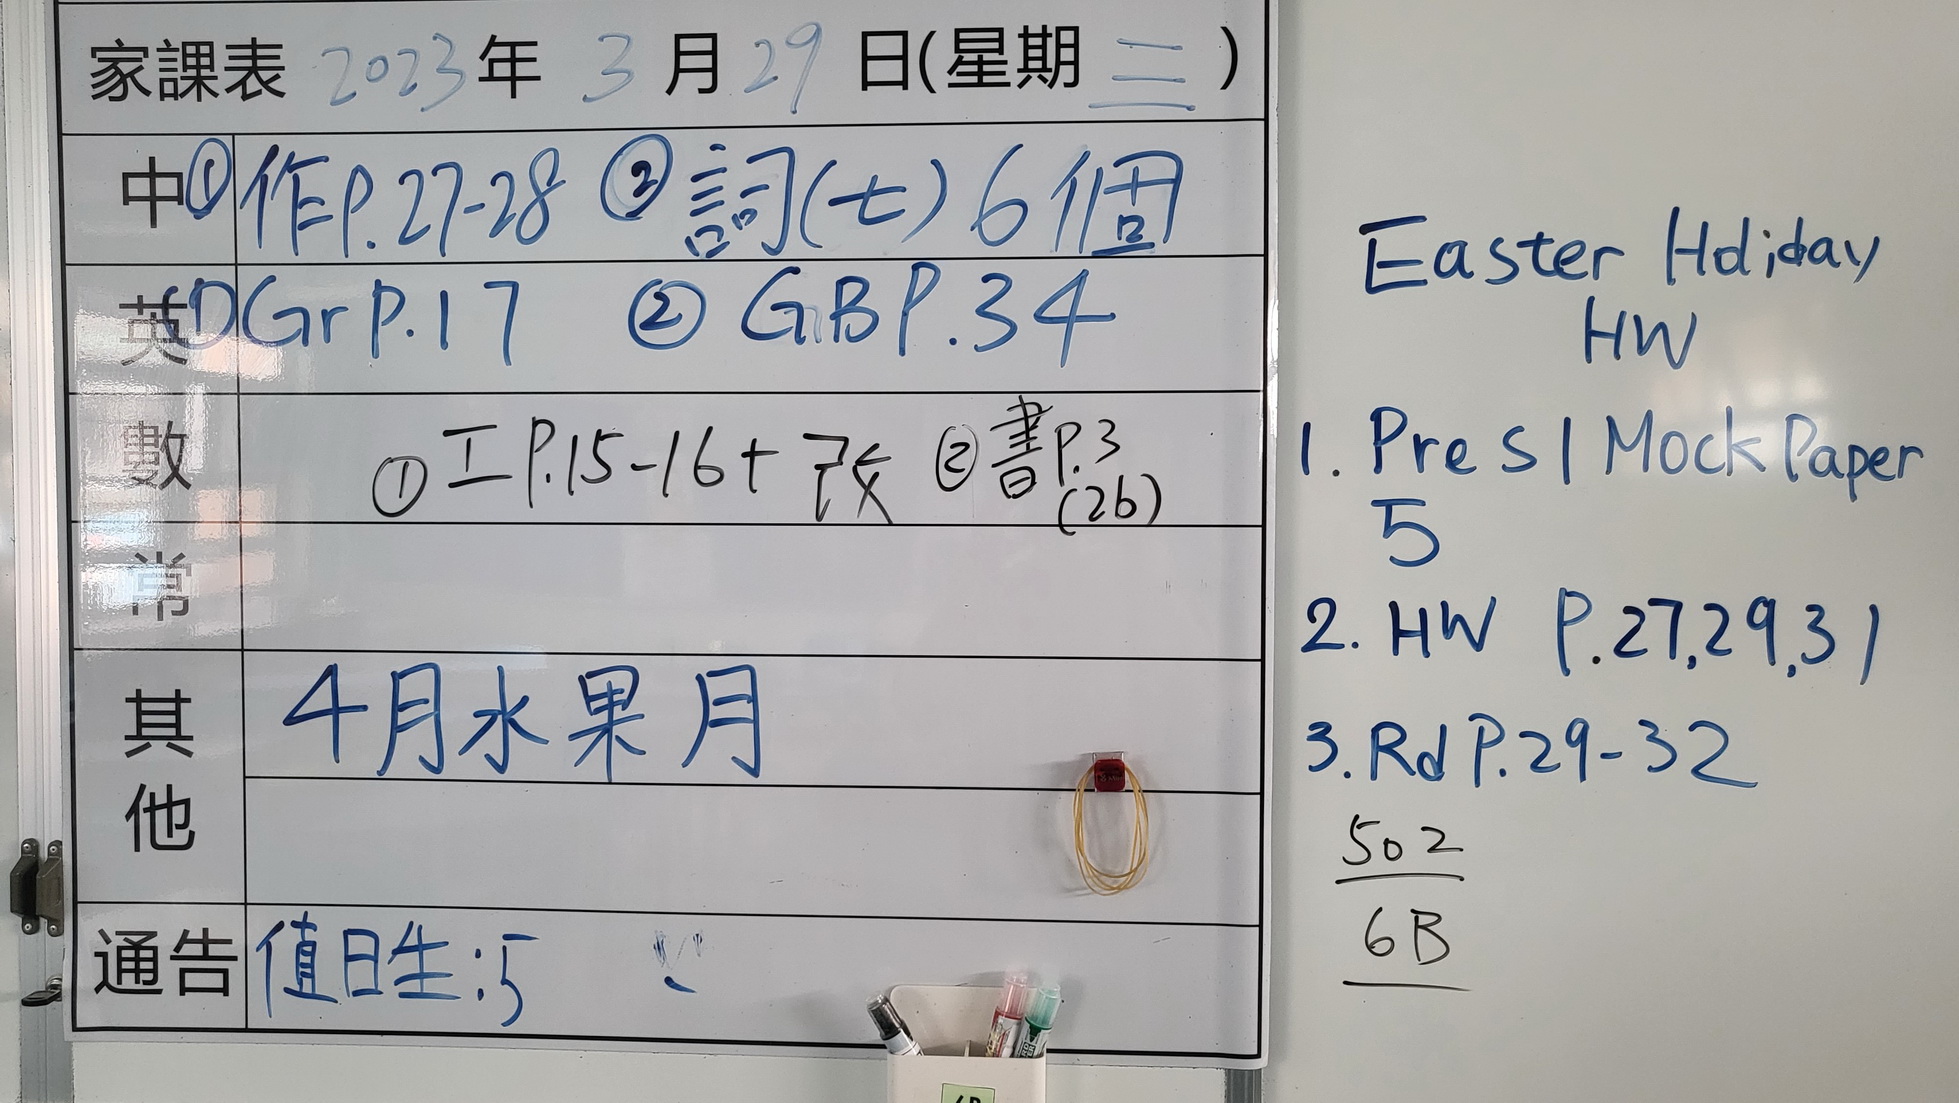 家課表 2023年 3月29日(星期三)
中 ①作P.27-28 ②詞(七)6個
英 ①Gr P.17 ②GB P.34
數 ①工P.15-16+改 ②書P.3
(2b)
常
其他 4月水果月
通告 值日生:5
Easter Holiday
HW
1. Pre S1 Mock Paper
5
2. HW P.27,29,31
3. Rd P.29-32
502
6B